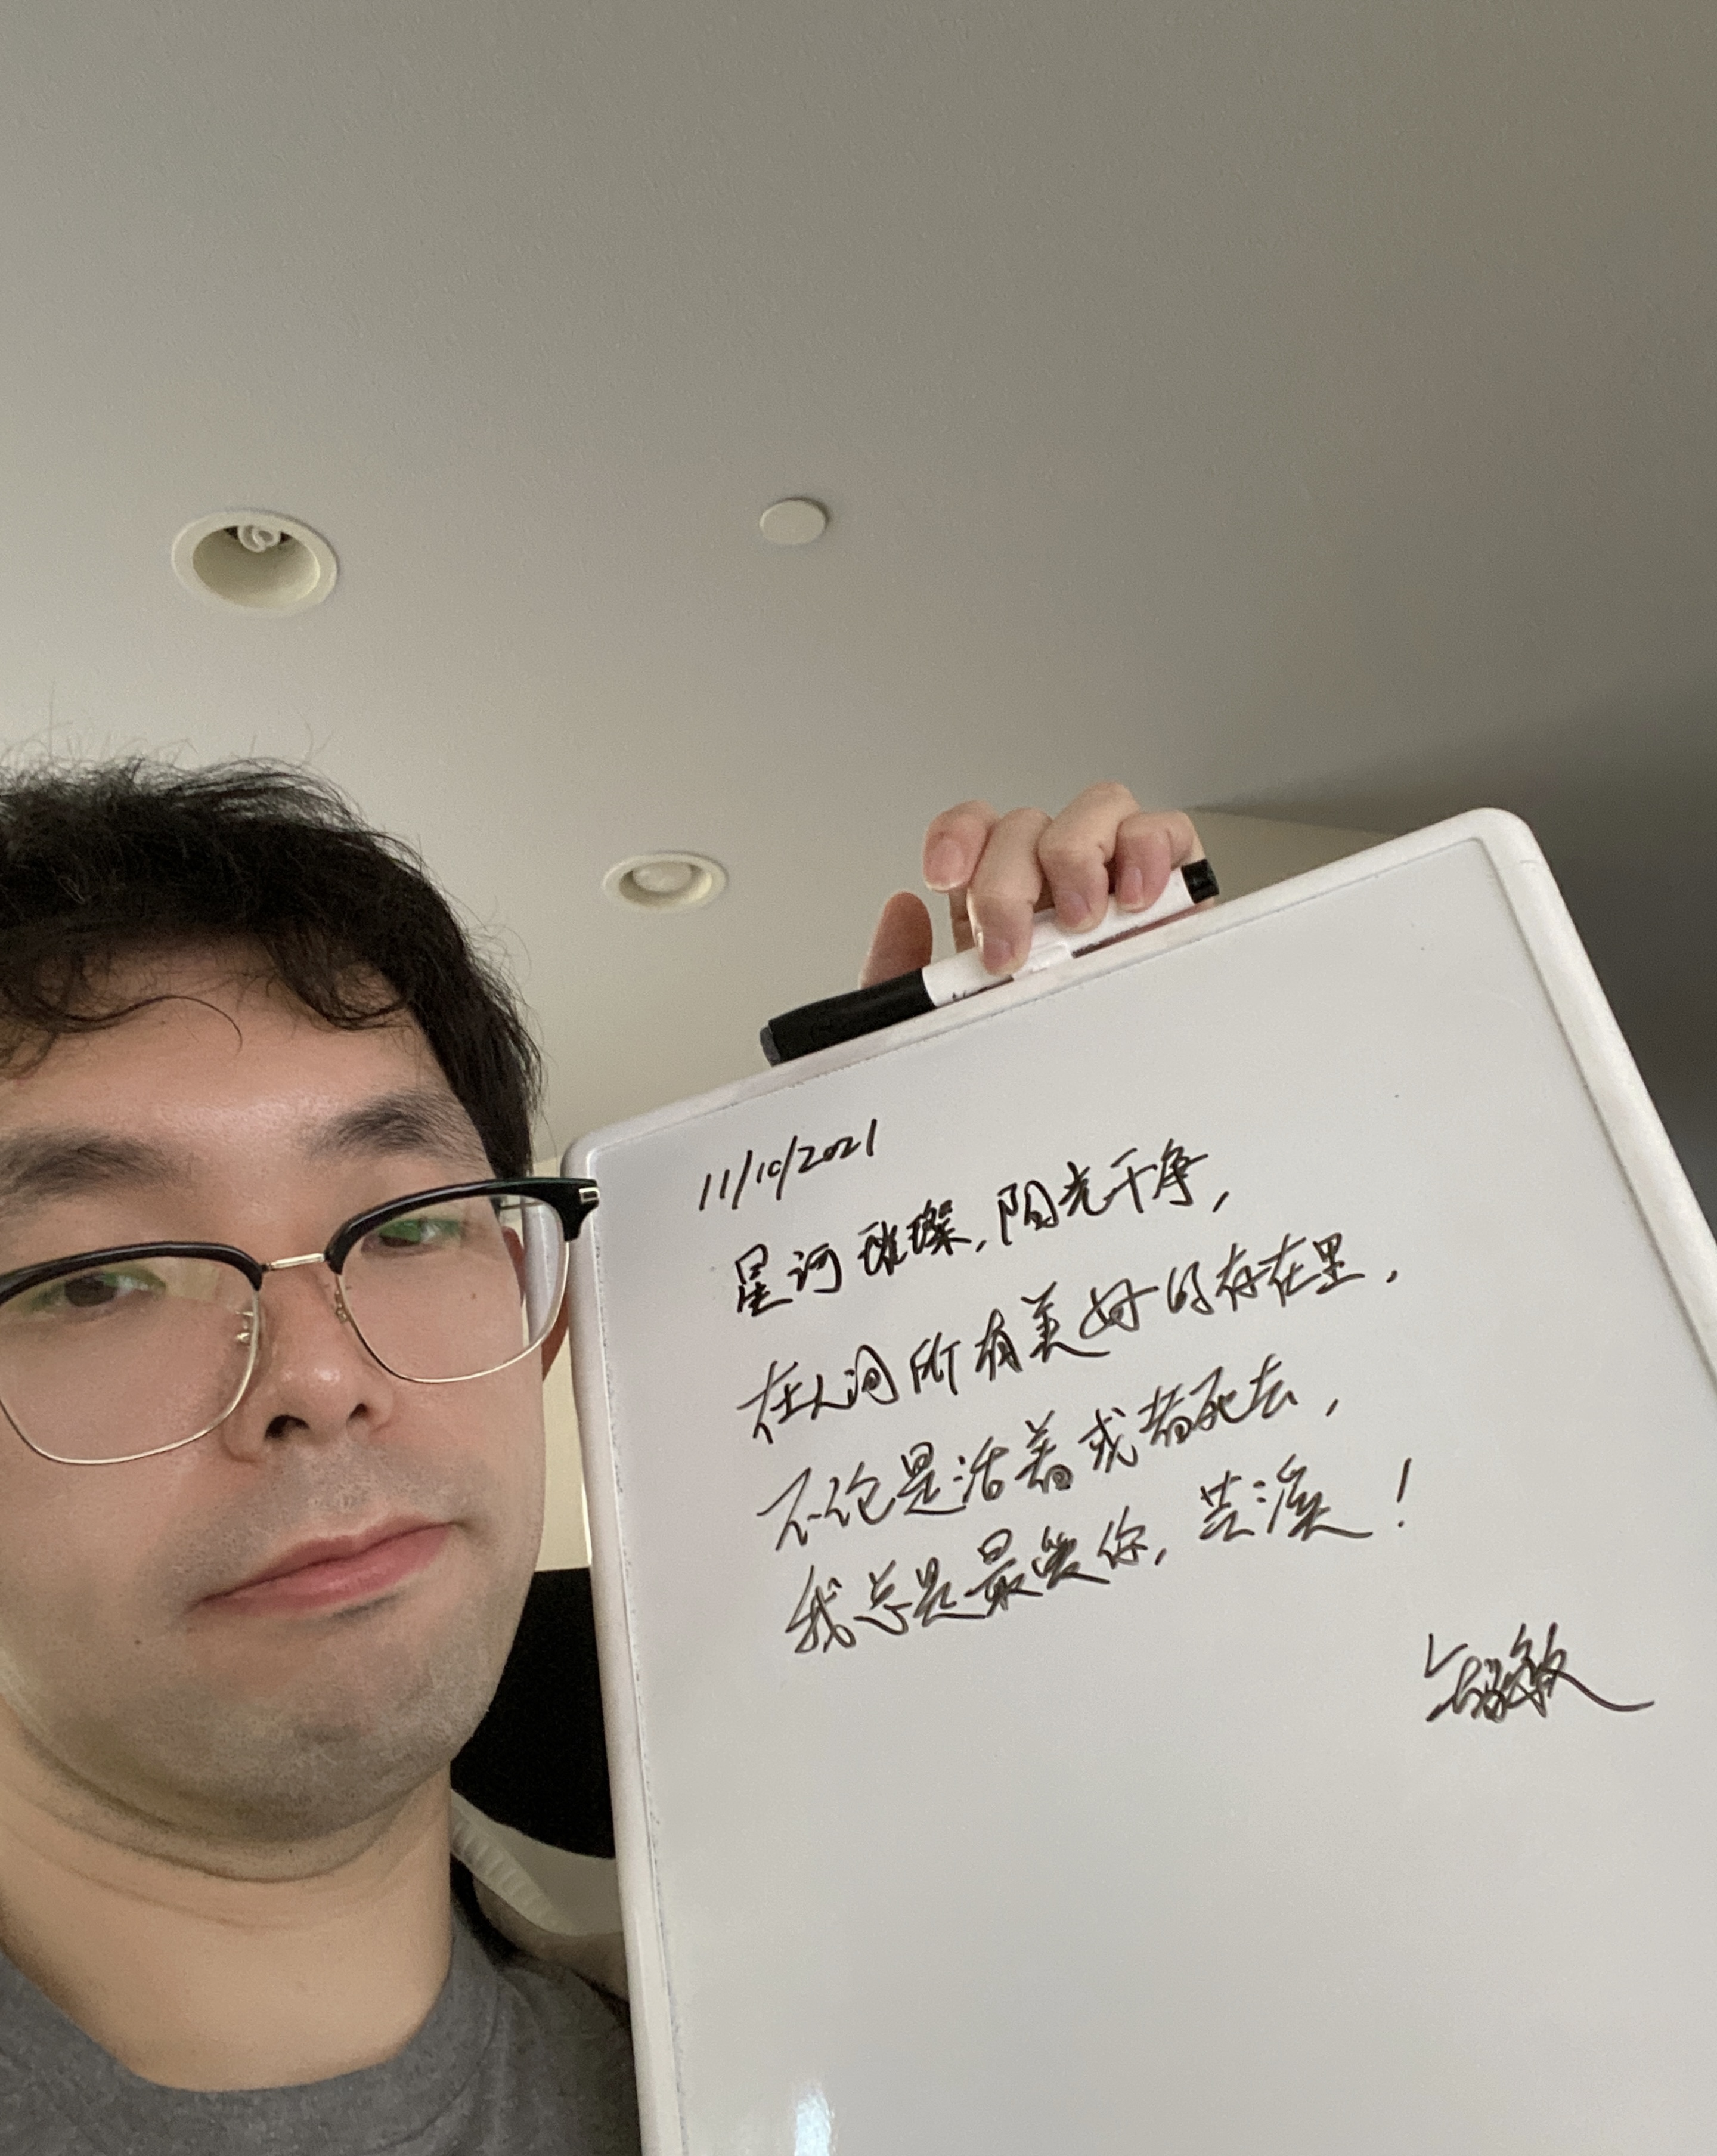 11/10/2021
星河璀璨，阳光干净，
在人间所有美好的存在里，
不论是活着或者死去，
我总是最爱你，芸溪！
敏